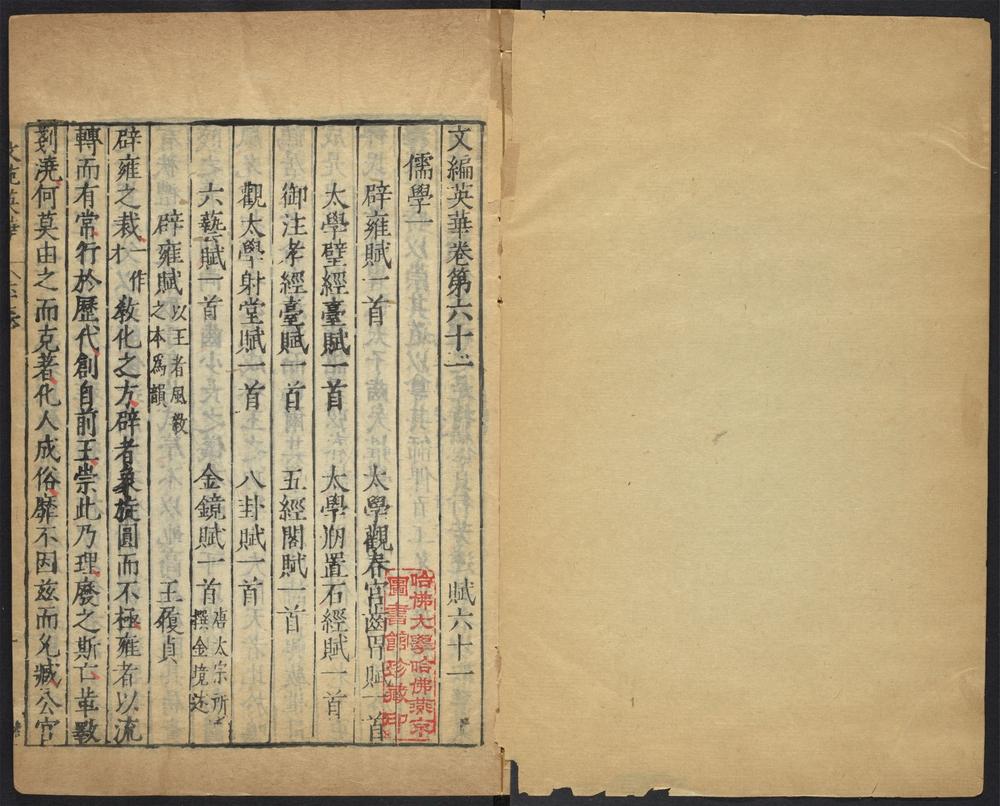 文編英華卷第六十一　賦六十一
儒學一
辟雍賦一首　太學觀春宮齒胄賦一首
太學壁經臺賦一首　太學刱置石經賦一首
御注孝經臺賦一首　五經閣賦一首
觀太學射堂賦一首　八卦賦一首
六藝賦一首　金鏡賦一首唐太宗所撰金境述
辟雍賦以王者風教之本爲韻　王履貞
辟雍之裁一作教化之方辟者象旋圓而不極雍者以流
轉而有常行於歷代創自前王崇此乃理廢之斯亡革敎
剗澆何莫由之而克著化人成俗靡不因兹而允臧公宫
哈佛大學哈佛燕京
圖書館珍藏印